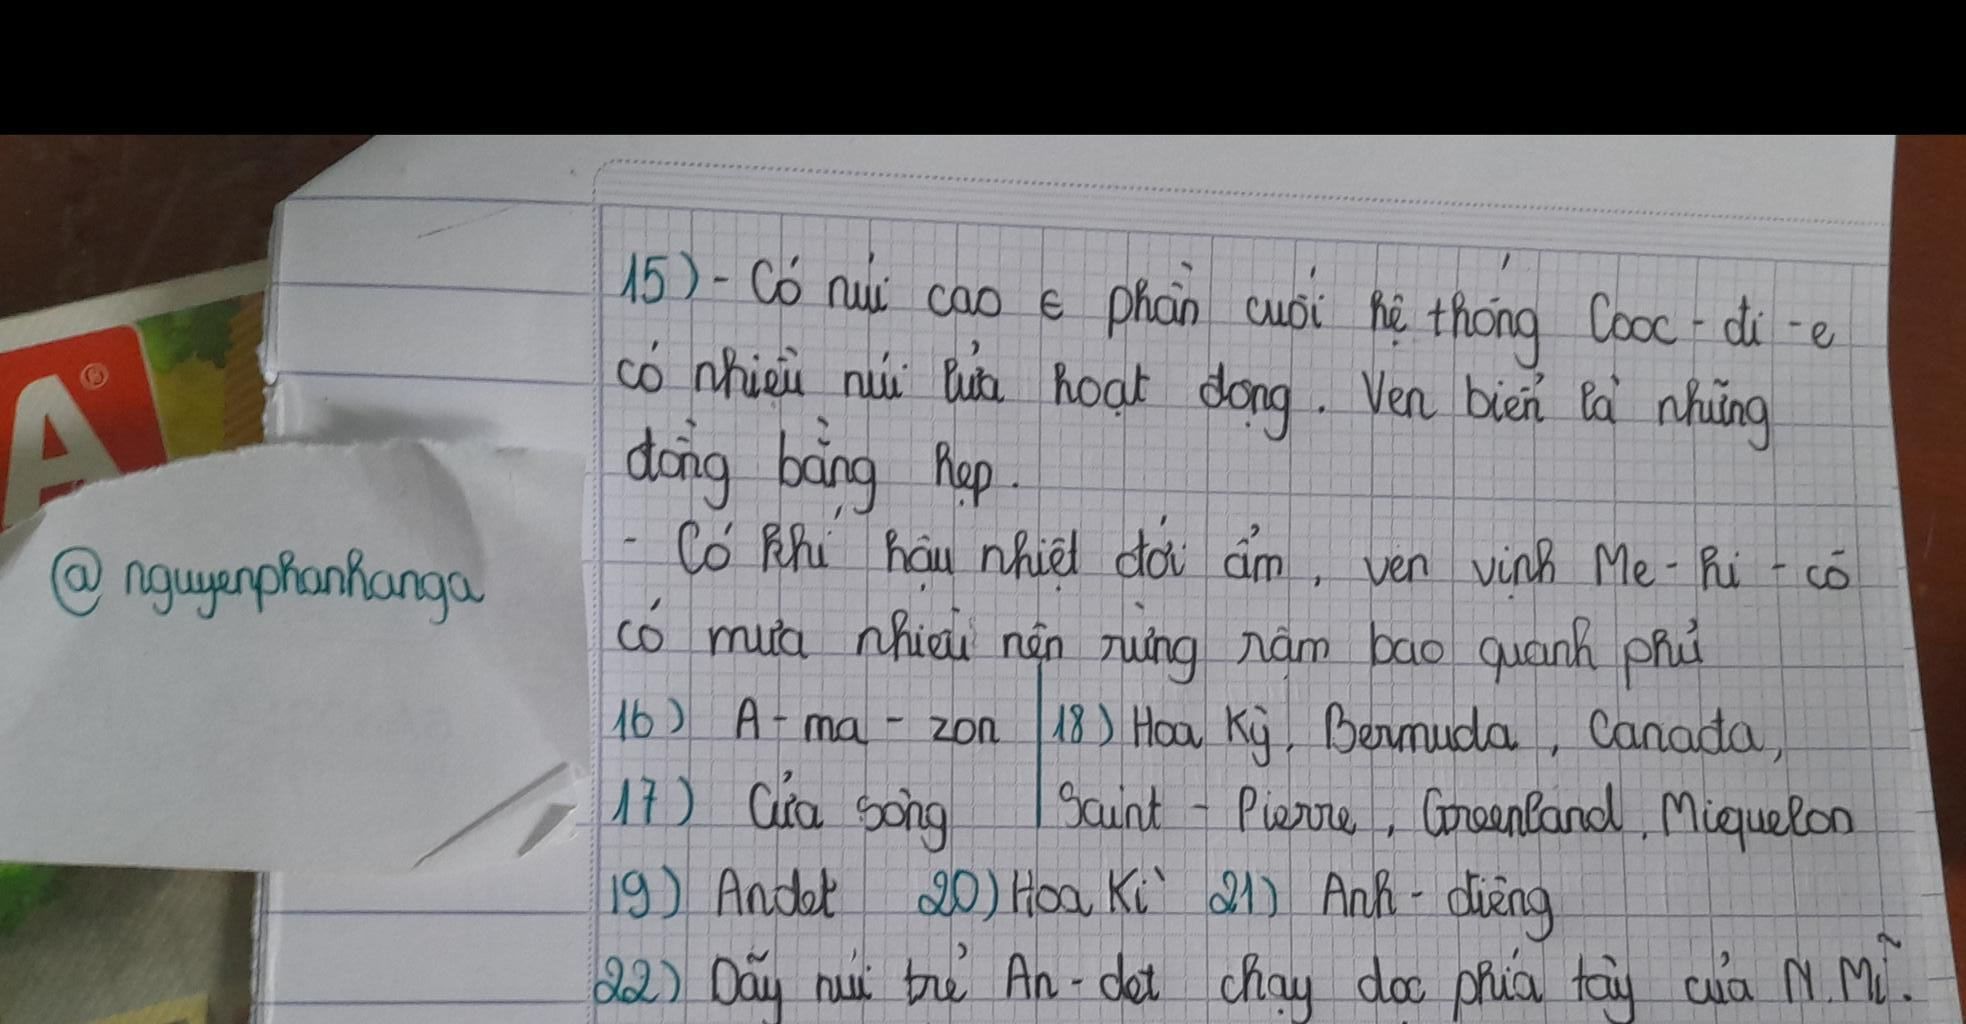 15) - Có núi cao є phần cuối hệ thống Cooc - đi - e
có nhiều núi lửa hoạt động. Ven biển là những
đồng bằng hẹp.
- Có khí hậu nhiệt đới ẩm, ven vịnh Me - hi - cô
có mưa nhiều nên rừng rậm bao quanh phủ
16) A - ma - zon
17) Cửa sông
18) Hoa Kỳ, Bermuda, Canada,
Saint - Pierre, Greenland, Miquelon
19) Andet 20) Hoa Kì 21) Anh - điêng
22) Dãy núi trẻ An - det chạy dọc phía tây của N. Mĩ.
@ nguyenphanhanga
A®